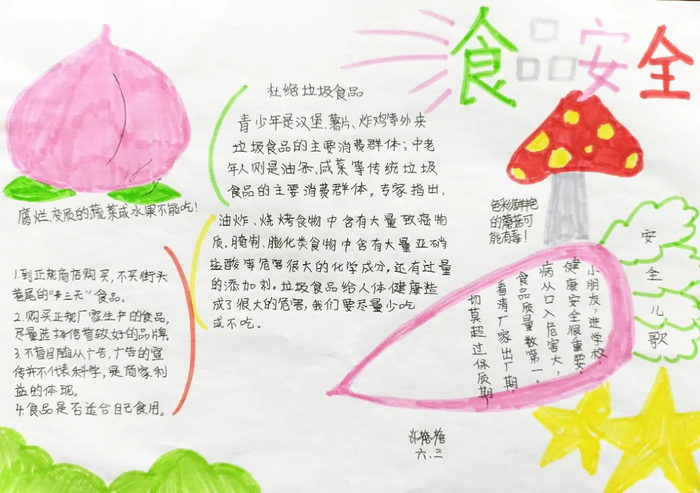 食品安全
杜绝垃圾食品
青少年是汉堡、薯片、炸鸡等外来
垃圾食品的主要消费群体；中老
年人则是油条、咸菜等传统垃圾
食品的主要消费群体。专家指出，
油炸、烧烤食物中含有大量致癌物
质、腌制、膨化类食物中含有大量亚硝
盐酸等危害很大的化学成分，还有过量
的添加剂。垃圾食品给人体健康造
成了很大的危害，我们要尽量少吃
或不吃。
腐烂变质的蔬菜或水果不能吃！
1.到正规商店购买，不买街头
巷尾的“三无”食品。
2.购买正规厂家生产的食品，
尽量选择信誉较好的品牌。
3.不盲目随从广告，广告的宣
传并不代表科学，是商家利
益的体现。
4.食品是否适合自己食用。
色彩鲜艳
的蘑菇可
能有毒！
安全儿歌
小朋友，进学校，
健康安全很重要，
病从口入危害大，
食品质量数第一。
看清厂家出厂期，
切莫超过保质期，
六、三